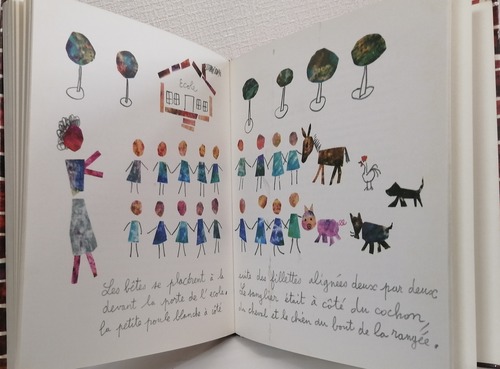 Les bêtes se placèrent à la suite des fillettes alignées deux par deux
devant la porte de l'école. Le sanglier était à côté du cochon,
la petite poule blanche à côté du cheval et le chien au bout de la rangée.
École